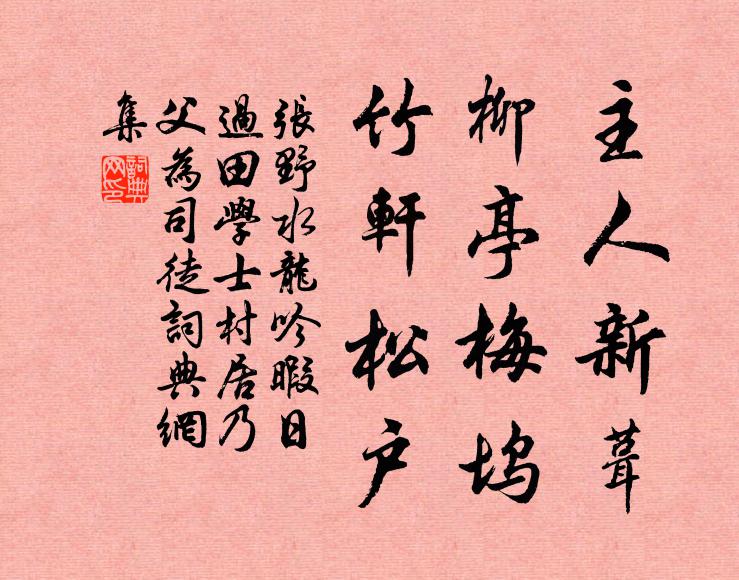 主人新葺
柳亭梅坞
竹軒松户
張野水龍吟暇日
過田學士村居乃
父為司徒詞典網
集
詞典網印